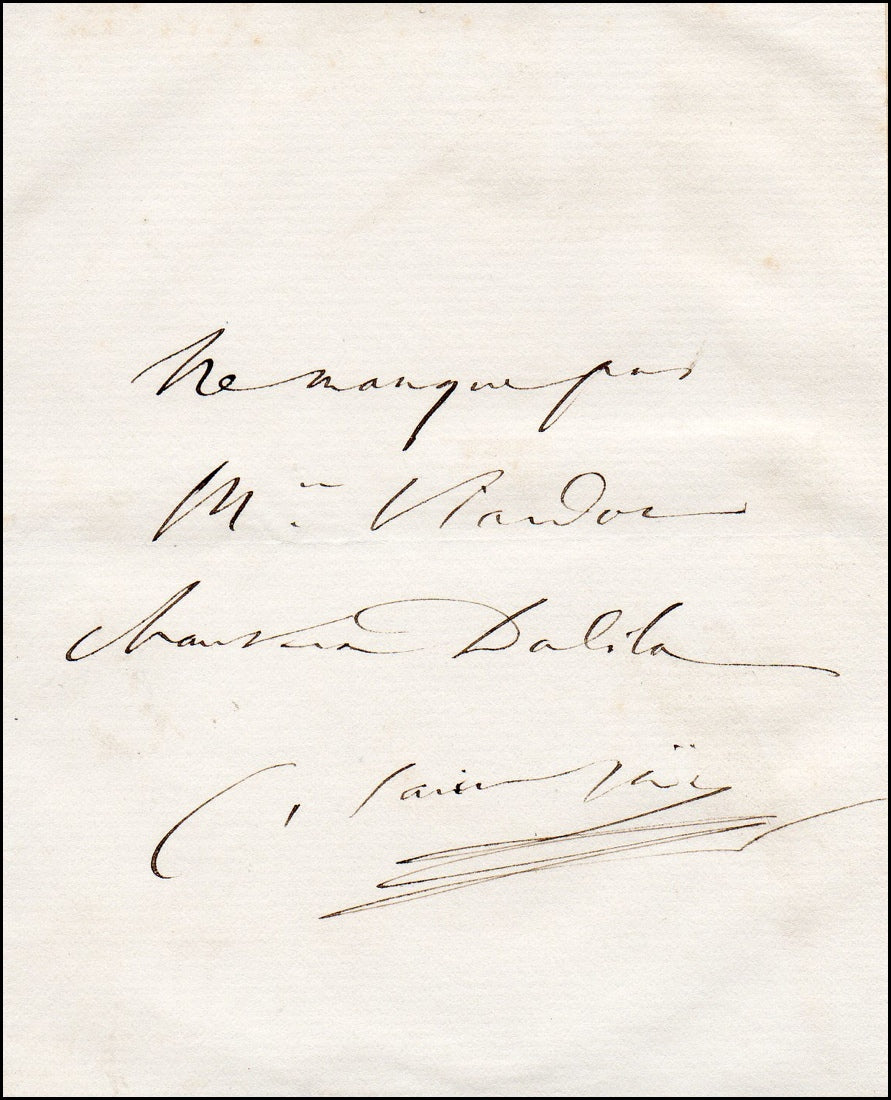 Ne manque pas
Mme Viardot
chantera Dalila
C. Saint-Saëns